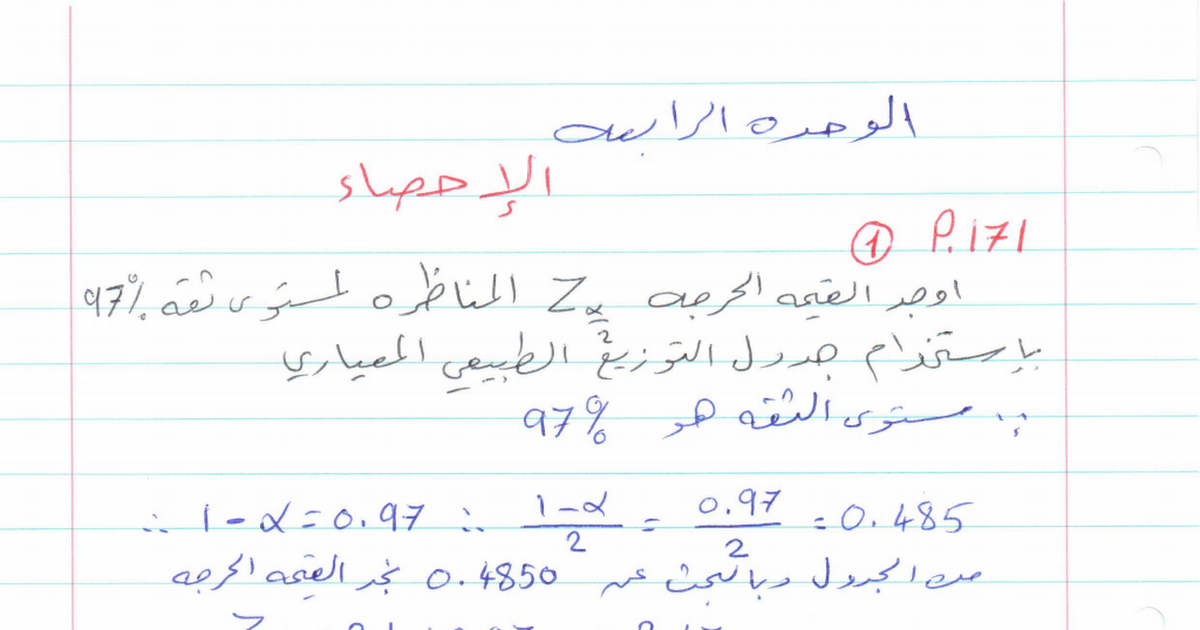 الوحده الرابعه
الإحصاء
① P.171
اوجد القيمه الحرجه Zα/2 المناظره لمستوى ثقة 97%
بإستخدام جدول التوزيع الطبيعي المعياري
∵ مستوى الثقه هو 97%
∴ 1-α=0.97 ∴ (1-α)/2 = 0.97/2 = 0.485
من الجدول وبالبحث عن 0.4850 نجد القيمه الحرجه